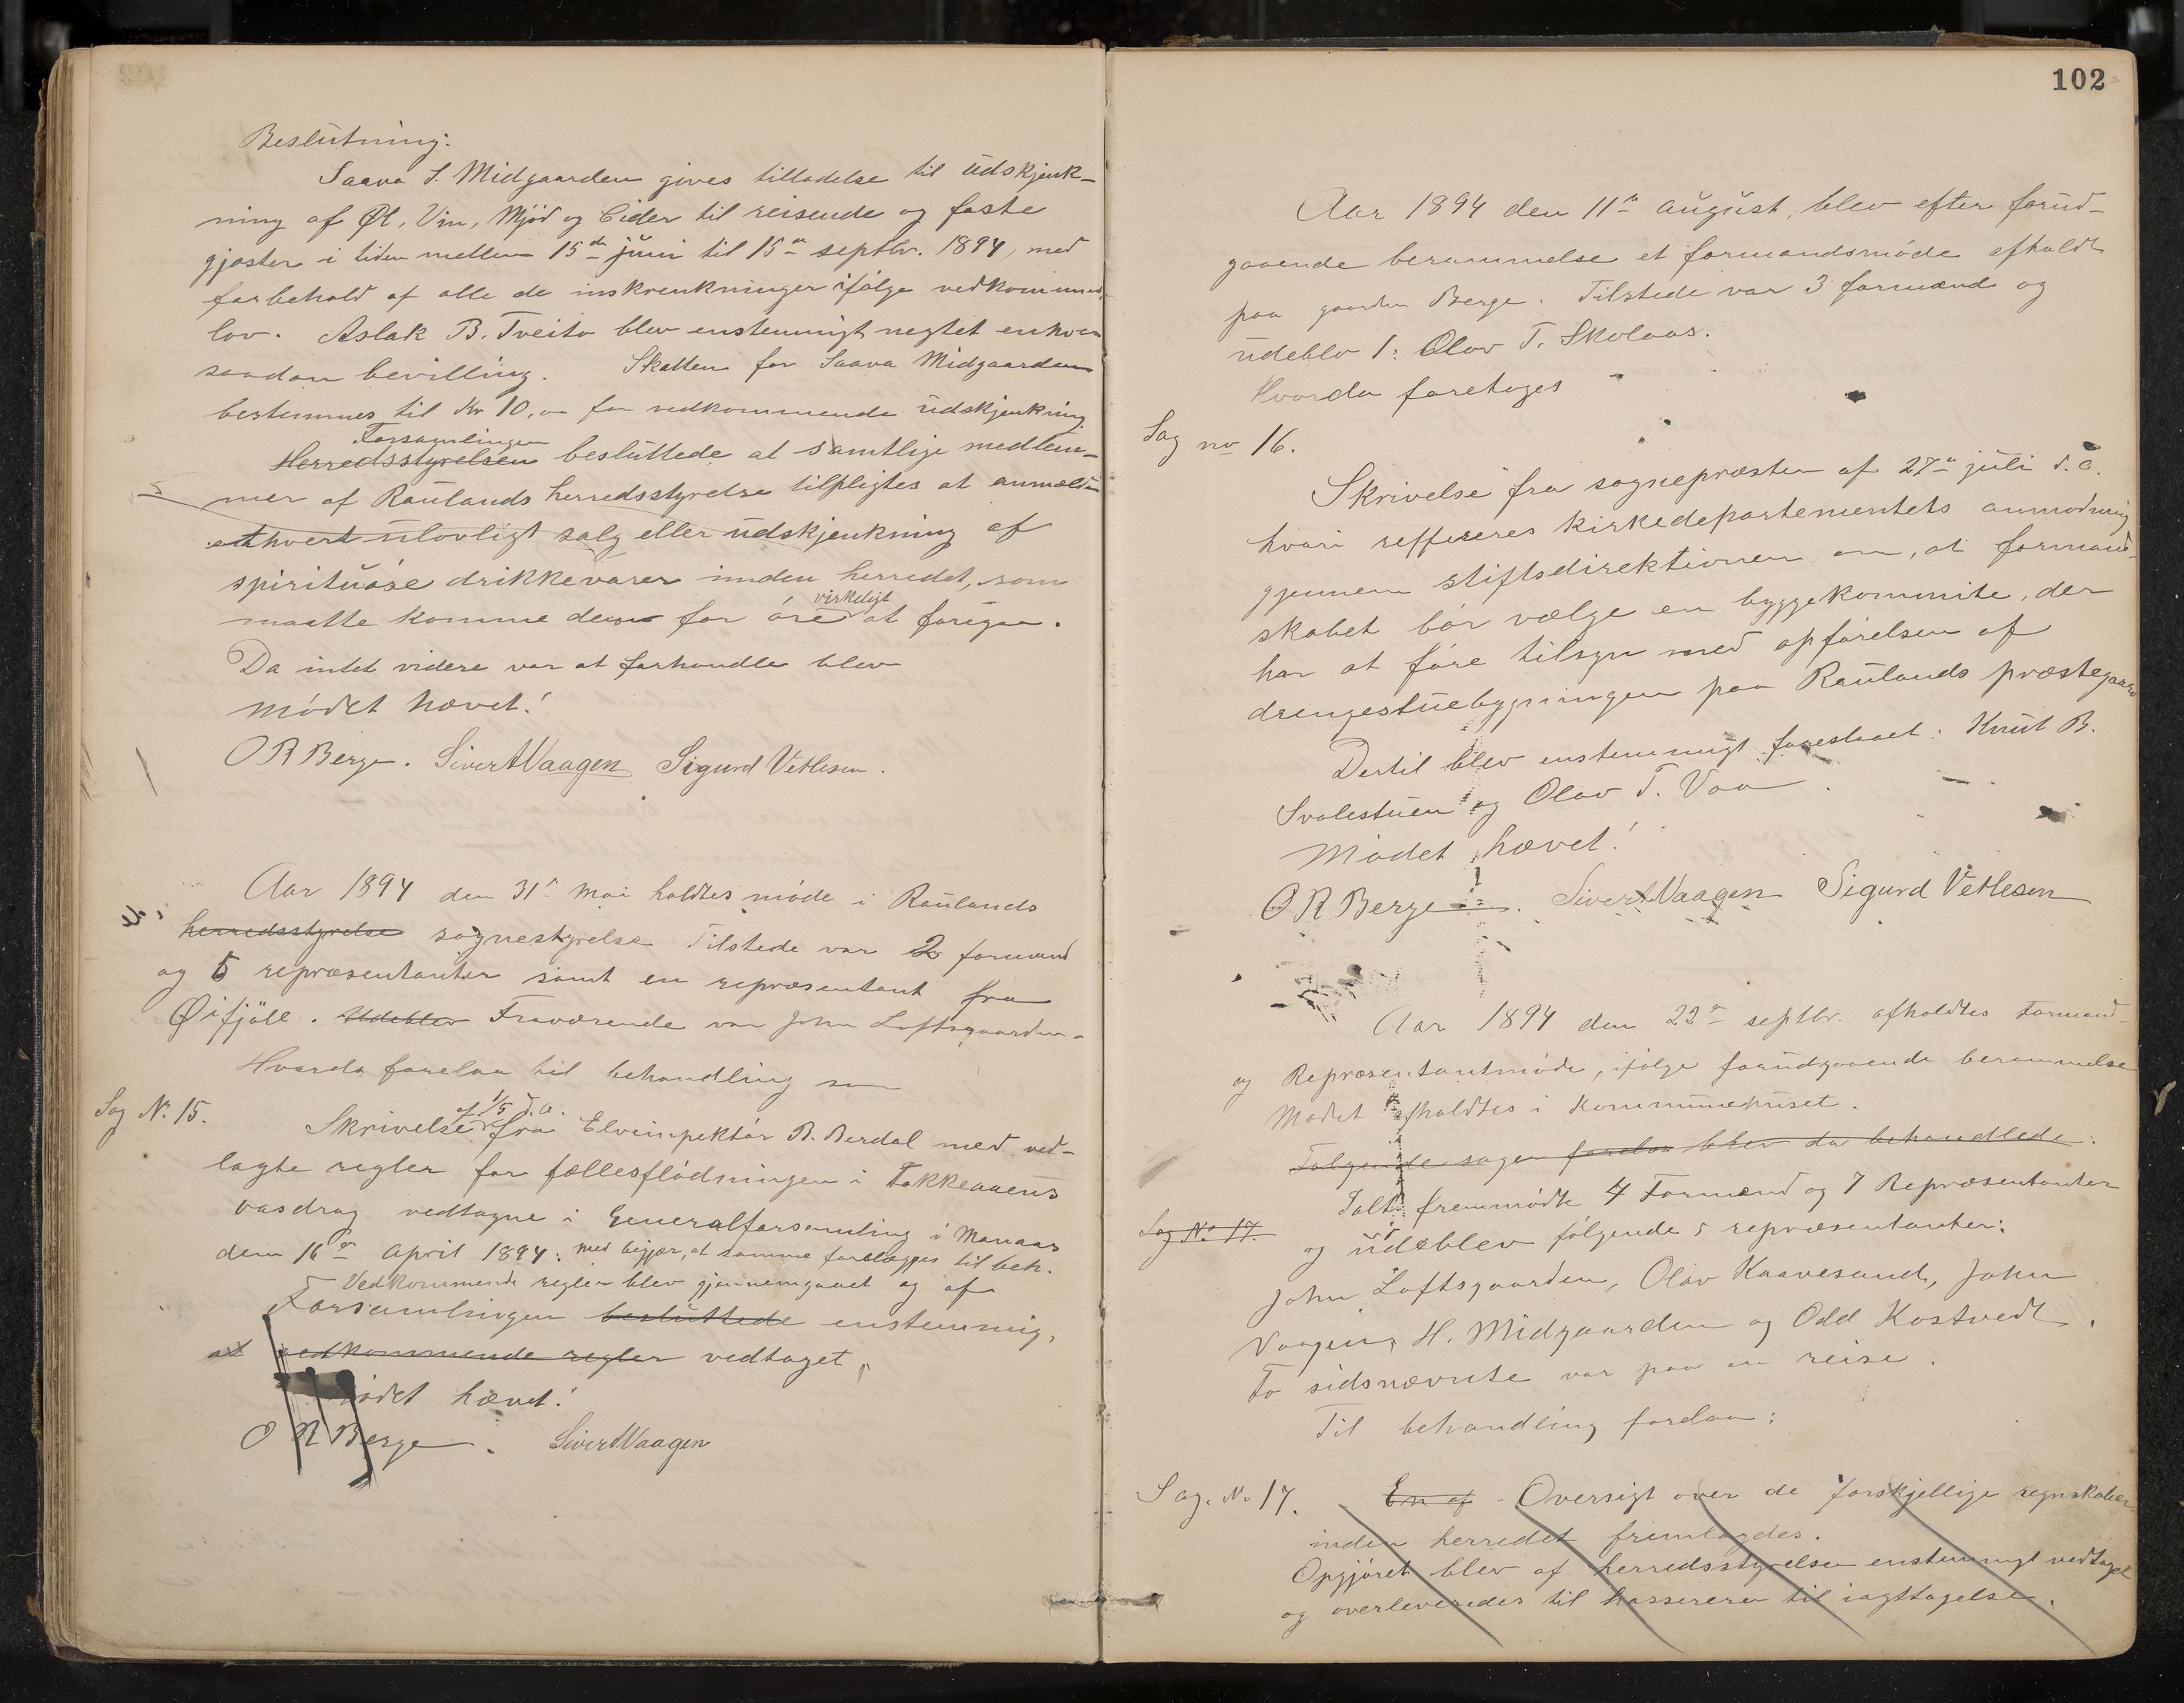 Beslutning:
Saava S. Midgaarden gives tilladelse til udskjenk-
ning af Øl, Vin, Mjød og Cider til reisende og faste
gjæster i tiden mellem 15de juni til 15de septbr. 1894, med
forbehold af alle de inskrenkninger ifølge vedkommend.
lov. Aslak B. Tveito blev enstemmigt negtet enhver
saadan bevilling. Skatten for Saava Midgaarden
bestemmes til Kr 10,00 for vedkommende udskjenkning.
Forsamlingen
Herredsstyrelsen besluttede at samtlige medlem-
mer af Raulands herredsstyrelse tilpligtes at anmælde
ethvert ulovligt salg eller udskjenkning af
spirituøse drikkevarer inden herredet, som
virkeligt
maatte komme dem for øre at foregaa.
Da intet videre var at forhandle blev
mødet hævet!
O R Berge. Sivert Vaagen Sigurd Vetlesen.
Aar 1894 den 31te Mai holdtes møde i Raulands
herredsstyrelse sognestyrelse Tilstede var 2 formænd
og 5 repræsentanter samt en repræsentant fra
Øifjäll. Udeblev Fraværende var John Loftsgaarden.
Hvorda forelaa til behandling
Sag No. 15.
af 1/5 d.a.
Skrivelse fra Elveinpektør B. Berdal med ved-
lagte regler for fællesflødningen i Tokkeaaens
vasdrag vedtagne i Generalforsamling i Manaas
dem 16de April 1894. med begjær, at samme forelægges til beh.
Vedkommende regler blev gjennemgaaet og af
Forsamlingen besluttede enstemmig,
at vedkommende regler vedtaget.
Mødet hævet!
O R Berge. Sivert Vaagen
102
Aar 1894 den 11te august, blev efter forud-
gaaende berammelse et formandsmøde afholdt
paa gaarden Berge. Tilstede var 3 formænd og
udeblv 1: Olav T. Skolaas.
Hvorda foretoges
Sag no 16.
Skrivelse fra sognepræsten af 27de juli d. a.
hvori reffereres kirkedepartementets anmodning
gjennem stiftsdirektionen om, at formand-
skabet bør vælge en byggekommite, der
har at føre tilsyn med opførelsen af
drengestuebygningen paa Raulands præstegaard
Dertil blev enstemmigt foreslaaet: Knut B.
Svalestuen og Olav T. Vaa.
Mødet hævet!
O R Berge. Sivert Vaagen Sigurd Vetlesen
Aar 1894 den 22de septbr. afholdtes Formand-
og Repræsentantmøde, ifølge forudgaaende berammelse
Mødet afholdtes i Kommunehuset.
Følgende sager forelaa blev da behandlede.
Ialt fremmødte 4 Formænd og 7 Repræsentanter
Sag No 17.
og udeblev følgende 5 repræsentanter:
John Loftsgaarden, Olav Kaavesand, John
Vaagen, H. Midgaarden og Odd Kostvedt.
To sidsnævnte var paa en reise.
Til behandling forelaa:
Sag. No 17.
En af Oversigt over de forskjellige regnskaber
inden herredet fremlagdes.
Opgjøret blev af herredsstyrelsen enstemmigt vedtaget
og overleveredes til kassereren til iagttagelse.